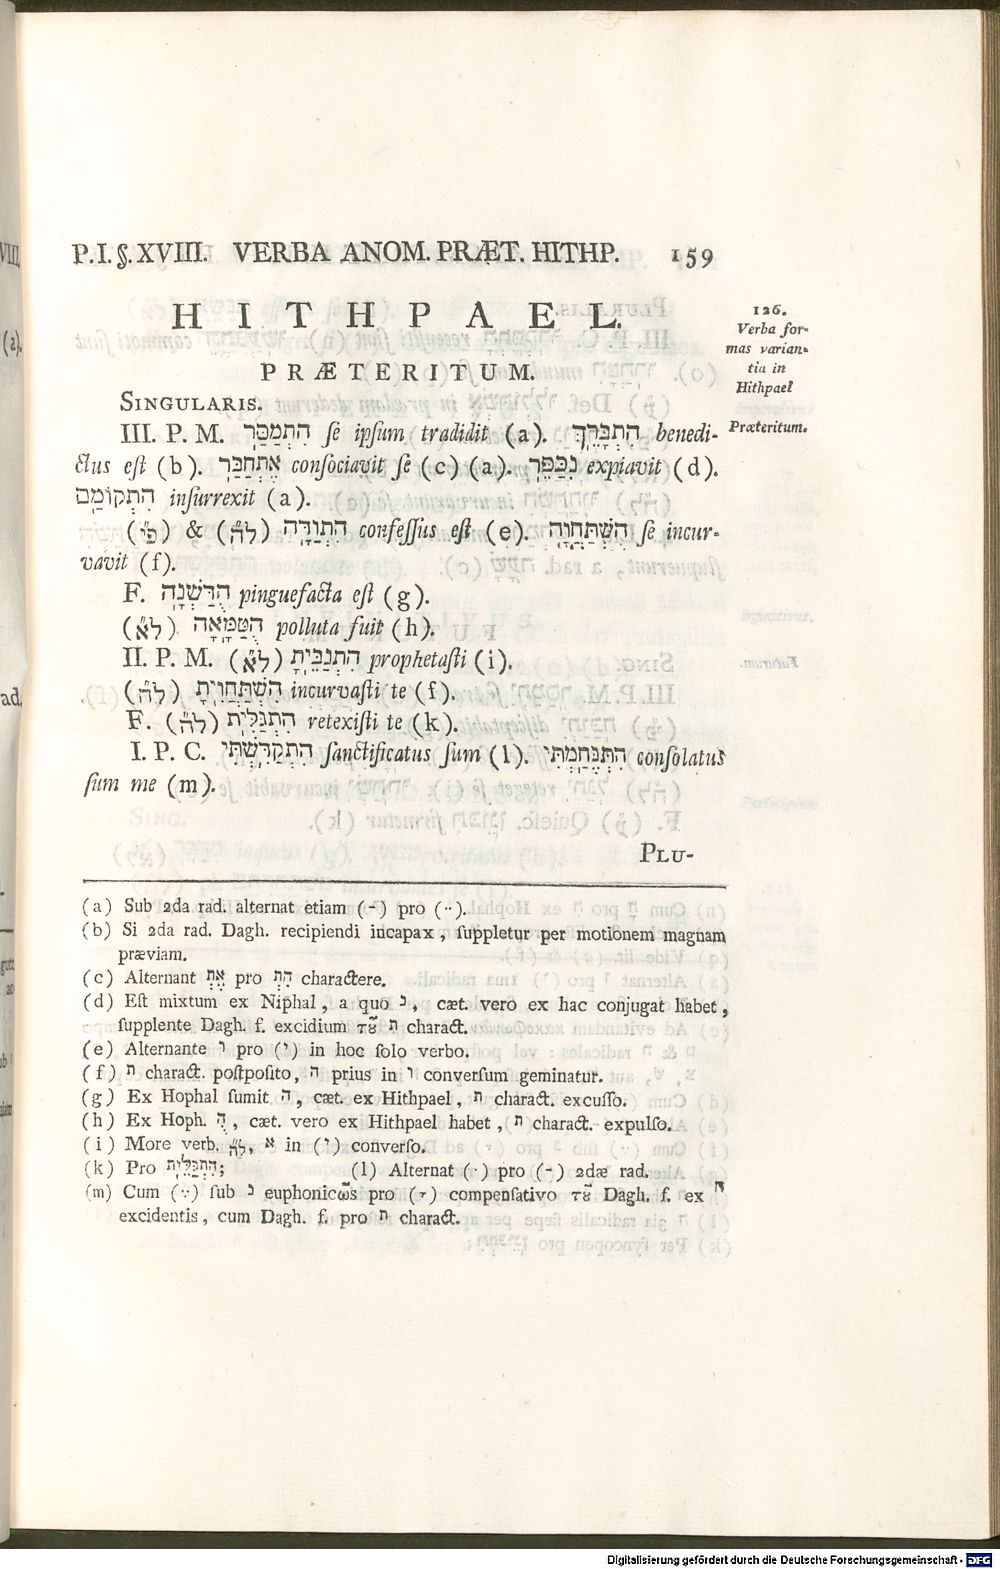 P. I. §. XVIII. VERBA ANOM. PRÆT. HITHP. 159
HITHPAEL.
PRÆTERITUM.
SINGULARIS.
III. P. M. הִתְמַכֵּר ſe ipſum tradidit (a). הִתְבָּרֵךְ benedi-
ctus eſt (b). אֶתְחַבַּר conſociavit ſe (c) (a). נִכַּפֵּר expiavit (d).
הִתְקוֹמַם inſurrexit (a).
(פ״י) & (ל״ה) הִתְוַדָּה confeſſus eſt (e). הִשְׁתַּחֲוָה ſe incur-
vavit (f).
F. הֻדַּשְׁנָה pinguefacta eſt (g).
(ל״א) הֻטַּמָּאָה polluta fuit (h).
II. P. M. (ל״א) הִתְנַבֵּיתָ prophetaſti (i).
(ל״ה) הִשְׁתַּחֲוִיתָ incurvaſti te (f).
F. (ל״ה) הִתְגַּלִּית retexiſti te (k).
I. P. C. הִתְקַדִּשְׁתִּי ſanctificatus ſum (l). הִתְנֶחַמְתִּי conſolatus
ſum me (m).
PLU-
126.
Verba for-
mas varian-
tia in
Hithpael
Præteritum.
(a) Sub 2da rad. alternat etiam (-) pro (··).
(b) Si 2da rad. Dagh. recipiendi incapax, ſuppletur per motionem magnam
præviam.
(c) Alternant אֶת pro הִת charactere.
(d) Eſt mixtum ex Niphal, a quo נ, cæt. vero ex hac conjugat habet,
ſupplente Dagh. f. excidium τȣ͂ ת charact.
(e) Alternante ו pro (י) in hoc ſolo verbo.
(f) ת charact. poſtpoſito, ה prius in ו converſum geminatur.
(g) Ex Hophal ſumit הֻ, cæt. ex Hithpael, ת charact. excuſſo.
(h) Ex Hoph. הֻ, cæt. vero ex Hithpael habet, ת charact. expulſo.
(i) More verb. ל״ה, א in (י) converſo.
(k) Pro הִתְגַּלֵּית; (l) Alternat (·) pro (-) 2dæ rad.
(m) Cum (∵) ſub נ euphonicῶs pro (ָ) compenſativo τȣ͂ Dagh. f. ex ח
excidentis, cum Dagh. f. pro ת charact.
Digitalisierung gefördert durch die Deutsche Forschungsgemeinschaft - DFG